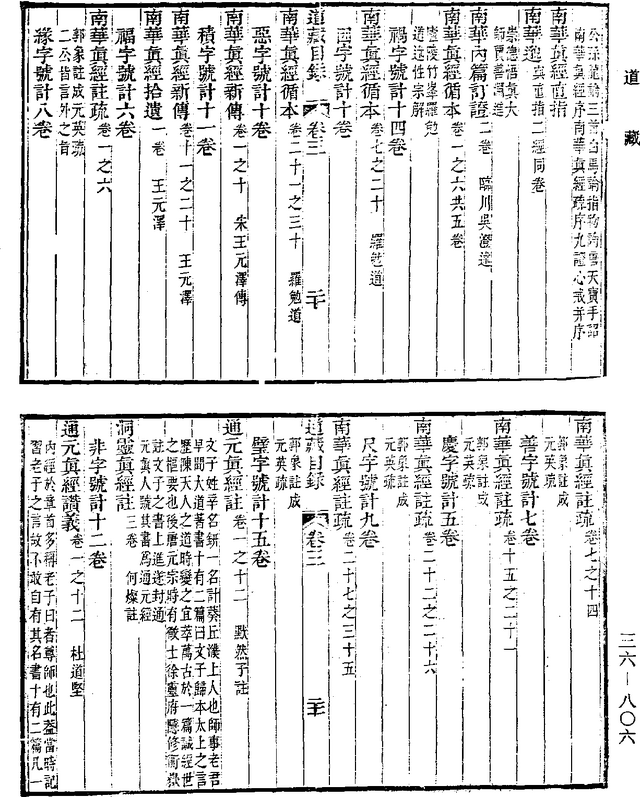 道藏
南華真經序南華真經疏序九證心戒并序
南華真經直指
南華邈與直指二經同卷
南華內篇訂證二卷 臨川吳澄述
南華真經循本卷一之六共五卷
禍字號計十四卷
南華真經循本卷七之二十 羅勉道
因字號計十卷
道藏目錄 卷三
南華真經循本卷二十一之三十 羅勉道
惡字號計十卷
南華真經新傳卷一之十 宋王元澤傳
積字號計十一卷
南華真經新傳卷十一之二十 王元澤
南華真經拾遺一卷 王元澤
福字號計六卷
南華真經註疏卷一之六
郭象註成元英疏
二公皆言外之旨
緣字號計八卷
南華真經註疏卷七之十四
郭象註成
元英疏
善字號計七卷
南華真經註疏卷十五之二十一
郭象註成
元英疏
慶字號計五卷
南華真經註疏卷二十二之二十六
郭象註成
元英疏
尺字號計九卷
南華真經註疏卷二十七之三十五
道藏目錄 卷三
郭象註成
元英疏
璧字號計十五卷
通元真經註卷一之十二 默然子註
文子姓辛名鈃一名計葵丘濮上人也師事老君
早聞大道著書十有二篇曰文子歸本太上之言
歷陳天人之道時變之宜萃萬古於一篇誠經世
之樞要也後唐元宗時有徵士徐靈府隱修衡嶽
註文子之書上進遂封通
元真人號其書為通元經
洞靈真經註三卷 何燦註
非字號計十二卷
通元真經讚義卷一之十二 杜道堅
內經於章首多稱老子曰者尊師也此蓋當時記
習老子之言故不敢自有其名書十有二篇凡一
三六—八〇六